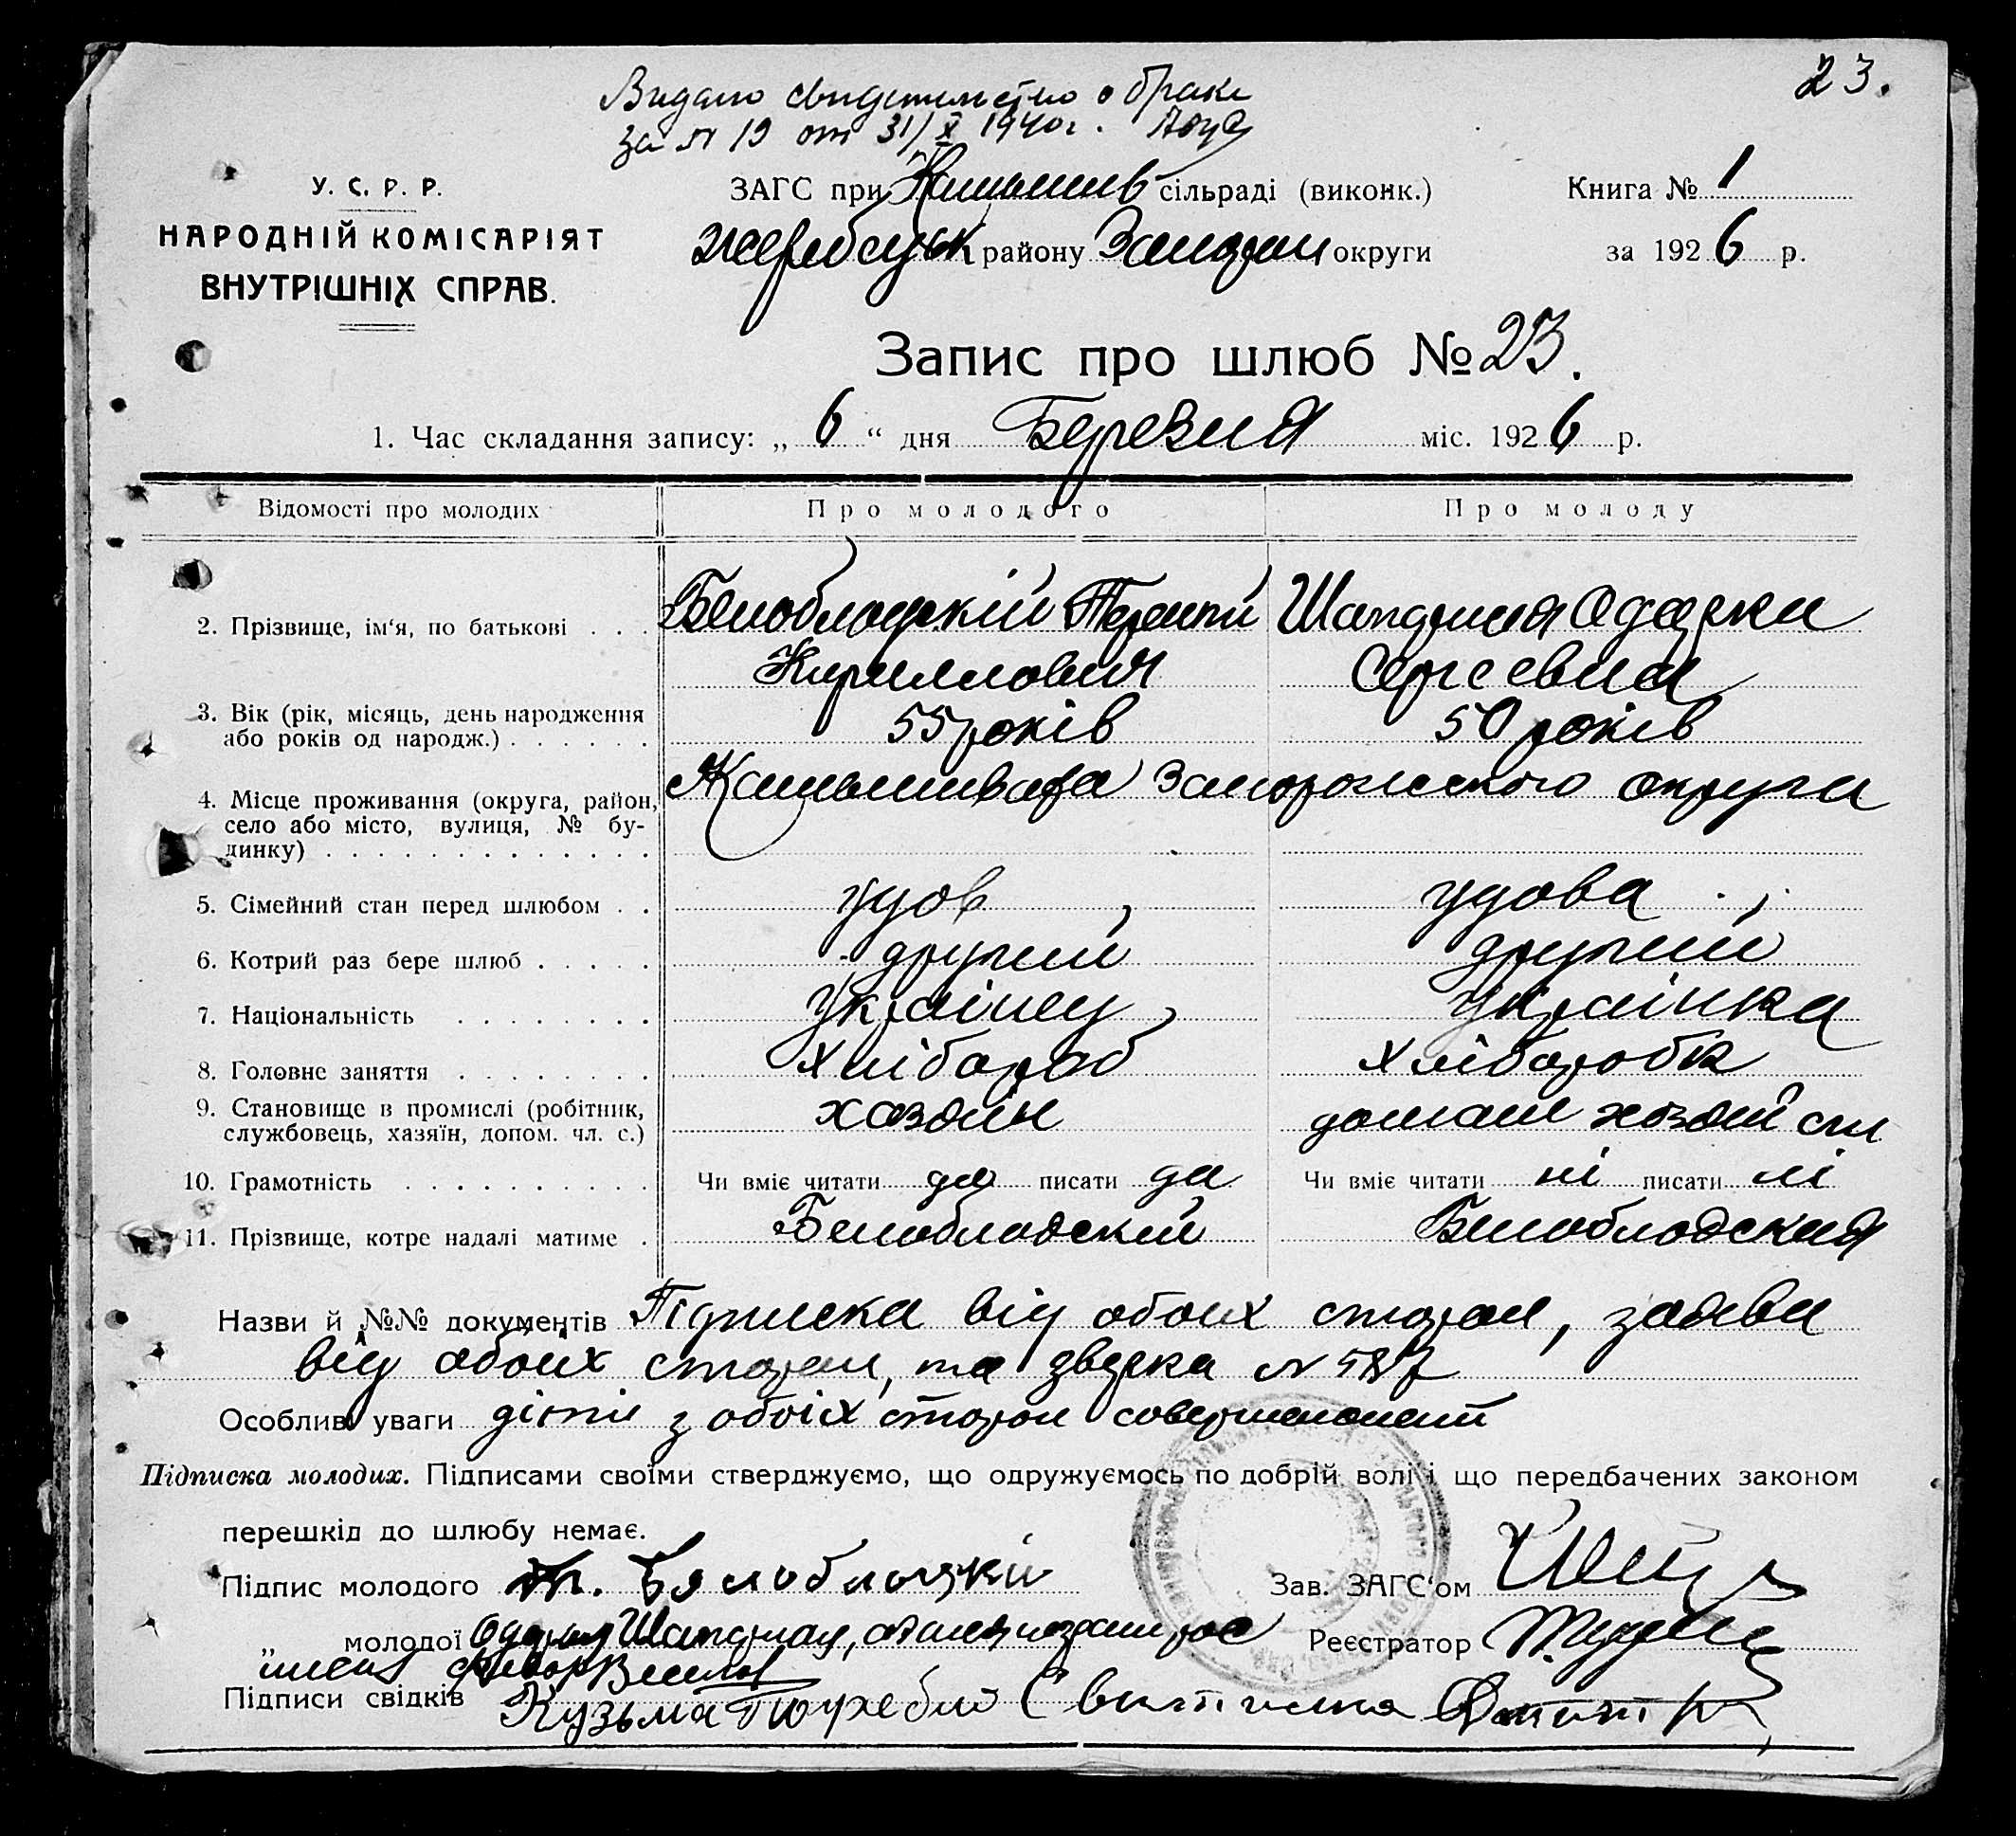 23.
Видано свидетельство о браке
за № 19 от 31/X 1940 г.
У. С. Р. Р.
НАРОДНІЙ КОМІСАРІЯТ
ВНУТРІШНІХ СПРАВ.
ЗАГС при Камышев сільраді (виконк.)
жеребецьк району Запорож округи
Книга № 1
за 1926 р.
Запис про шлюб № 23.
1. Час складання запису: „ 6 “ дня Березня міс. 1926 р.
Відомості про молодих
Про молодого
Про молоду
2. Прізвище, ім'я, по батькові . . .
Белоблоцкій Терентій
Кириллович
Одарка
Сергеевна
3. Вік (рік, місяць, день народження
або років од народж.) . . . . . .
55 років
50 років
4. Місце проживання (округа, район,
село або місто, вулиця, № бу-
динку) . . . . . . . . . . . . .
Камышеваха Запорожского округа
5. Сімейний стан перед шлюбом . .
удов
удова
6. Котрий раз бере шлюб . . . . .
другий
другий
7. Національність . . . . . . .
Українец
Українка
8. Головне заняття . . . . . . . .
Хлібороб
Хліборобка
9. Становище в промислі (робітник,
службовець, хазяїн, допом. чл. с.)
хозяїн
10. Грамотність . . . . . . . . . .
Чи вміє читати да писати да
Чи вміє читати ні писати ні
11. Прізвище, котре надалі матиме .
Белоблодский
Белоблодская
Назви й №№ документів Підписка від обоих сторон, заява
від обоих сторон, та
Особливі уваги діти з обоіх сторон
Підписка молодих. Підписами своїми стверджуємо, що одружуємось по добрій волі і що передбачених законом
перешкід до шлюбу немає.
Підпис молодого Т. Бялоблоцкій
Зав. ЗАГС'ом
„ молодої
Реєстратор
Підписи свідків Кузьма